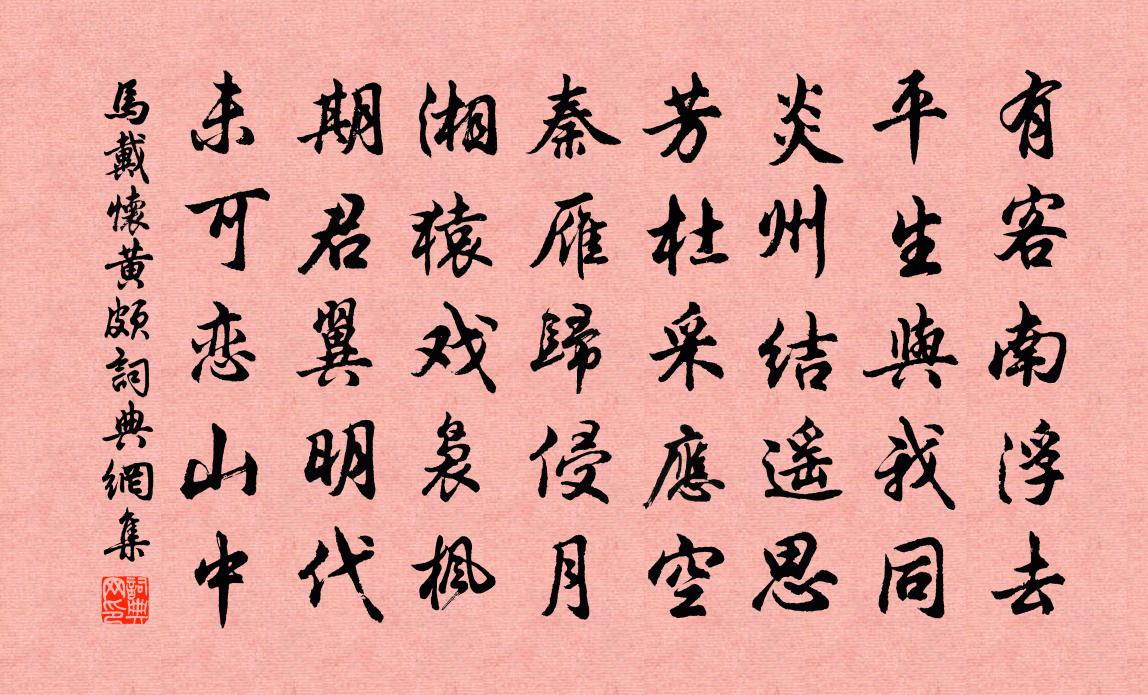 有客南浮去
平生與我同
炎州结遥思
芳杜采應空
秦雁歸侵月
湘猿戏裊楓
期君翼明代
未可恋山中
馬戴懷黃頗詞典網集
詞典網印